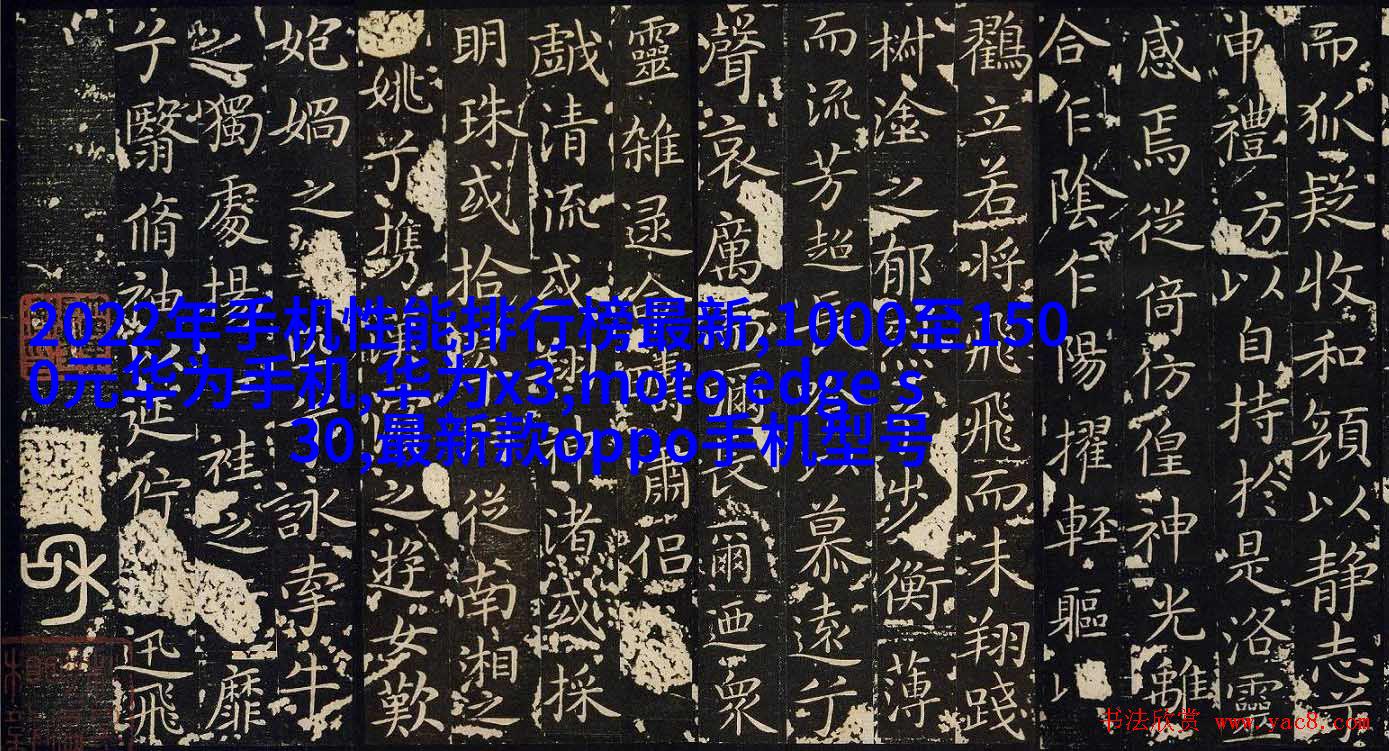 而狐疑收和顔以静志兮
申禮方以自持於是洛靈
感焉従倚仿徨神光離
合乍陰乍陽擢輕軀以
鸖立若将飛飛而未翔踐
塗之郁步衡薄
而流芳超長以慕遠兮
聲哀厲長爾迺衆
靈雑遝命嘯侣
戯清流或渚或採
明珠或拾従南湘之
姚兮攜之遊女歎
媧之詠牽牛
之獨處揚袿之靡
兮翳脩神延佇迅飛
2022年手机性能排行榜最新,1000至150
0元华为手机,华为x3,moto edge s
30,最新款oppo手机型号
书法欣赏 www.yac8.com